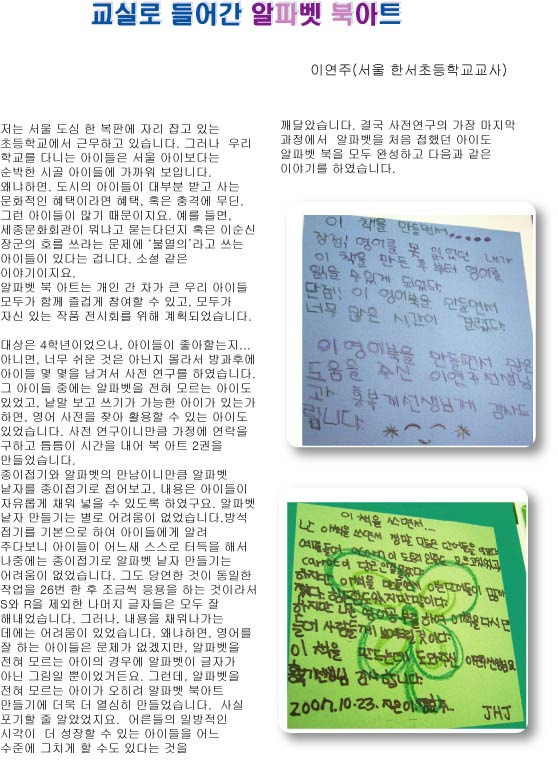 교실로 들어간 알파벳 북아트
이연주(서울 한서초등학교교사)
저는 서울 도심 한 복판에 자리 잡고 있는
초등학교에서 근무하고 있습니다. 그러나  우리
학교를 다니는 아이들은 서울 아이보다는
순박한 시골 아이들에 가까워 보입니다.
왜냐하면, 도시의 아이들이 대부분 받고 사는
문화적인 혜택이라면 혜택, 혹은 충격에 무딘,
그런 아이들이 많기 때문이지요. 예를 들면,
세종문화회관이 뭐냐고 묻는다던지 혹은 이순신
장군의 호를 쓰라는 문제에 ‘불멸의’라고 쓰는
아이들이 있다는 겁니다. 소설 같은
이야기이지요.
알파벳 북 아트는 개인 간 차가 큰 우리 아이들
모두가 함께 즐겁게 참여할 수 있고, 모두가
자신 있는 작품 전시회를 위해 계획되었습니다.
대상은 4학년이었으나, 아이들이 좋아할는지...
아니면, 너무 쉬운 것은 아닌지 몰라서 방과후에
아이들 몇 몇을 남겨서 사전 연구를 하였습니다.
그 아이들 중에는 알파벳을 전혀 모르는 아이도
있었고, 낱말 보고 쓰기가 가능한 아이가 있는가
하면, 영어 사전을 찾아 활용할 수 있는 아이도
있었습니다. 사전 연구이니만큼 가정에 연락을
구하고 틈틈이 시간을 내어 북 아트 2권을
만들었습니다.
종이접기와 알파벳의 만남이니만큼 알파벳
낱자를 종이접기로 접어보고, 내용은 아이들이
자유롭게 채워 넣을 수 있도록 하였구요. 알파벳
낱자 만들기는 별로 어려움이 없었습니다.방석
접기를 기본으로 하여 아이들에게 알려
주다보니 아이들이 어느새 스스로 터득을 해서
나중에는 종이접기로 알파벳 낱자 만들기는
어려움이 없었습니다. 그도 당연한 것이 동일한
작업을 26번 한 후 조금씩 응용을 하는 것이라서
S와 R을 제외한 나머지 글자들은 모두 잘
해내었습니다. 그러나, 내용을 채워나가는
데에는 어려움이 있었습니다. 왜냐하면, 영어를
잘 하는 아이들은 문제가 없겠지만, 알파벳을
전혀 모르는 아이의 경우에 알파벳이 글자가
아닌 그림일 뿐이었거든요. 그런데, 알파벳을
전혀 모르는 아이가 오히려 알파벳 북아트
만들기에 더욱 더 열심히 만들었습니다.  사실
포기할 줄 알았었지요.  어른들의 일방적인
시각이  더 성장할 수 있는 아이들을 어느
수준에 그치게 할 수도 있다는 것을
깨달았습니다. 결국 사전연구의 가장 마지막
과정에서  알파벳을 처음 접했던 아이도
알파벳 북을 모두 완성하고 다음과 같은
이야기를 하였습니다.
이 책을 만들면서......
장점: 영어를 못 읽었던 내가
이 책을 만든 후부터 영어를
읽을 수 있게 되었다.
단점: 이 영어북을 만들면서
너무 많은 시간이 걸렸다.
이 영어북을 만들면서 많은
도움을 주신 이연주선생님
과 홍복계선생님께 감사드
립니다
이 책을 쓰면서...
난 이책을 쓰면서 정말 모든 단어들을 외웠다
carrot이
하지만
이 책을 만드는데 도와주신 이연주선생님
감사합니다.
2007.10.23.
JHJ